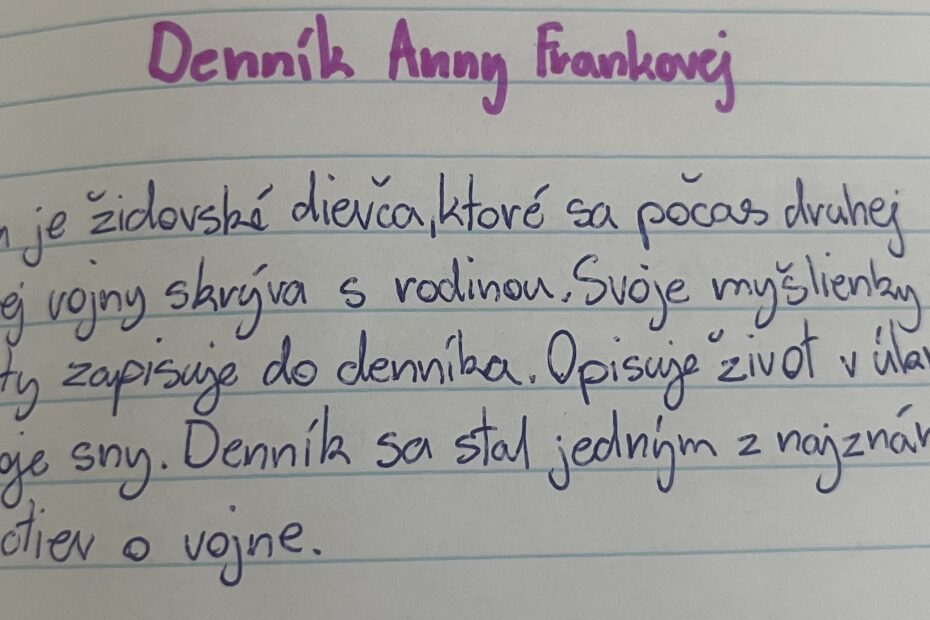 Denník Anny Frankovej
je židovské dievča, ktoré sa počas druhej
vojny skrýva s rodinou. Svoje myšlienky
zapisuje do denníka. Opisuje život v
sny. Denník sa stal jedným z
o vojne.